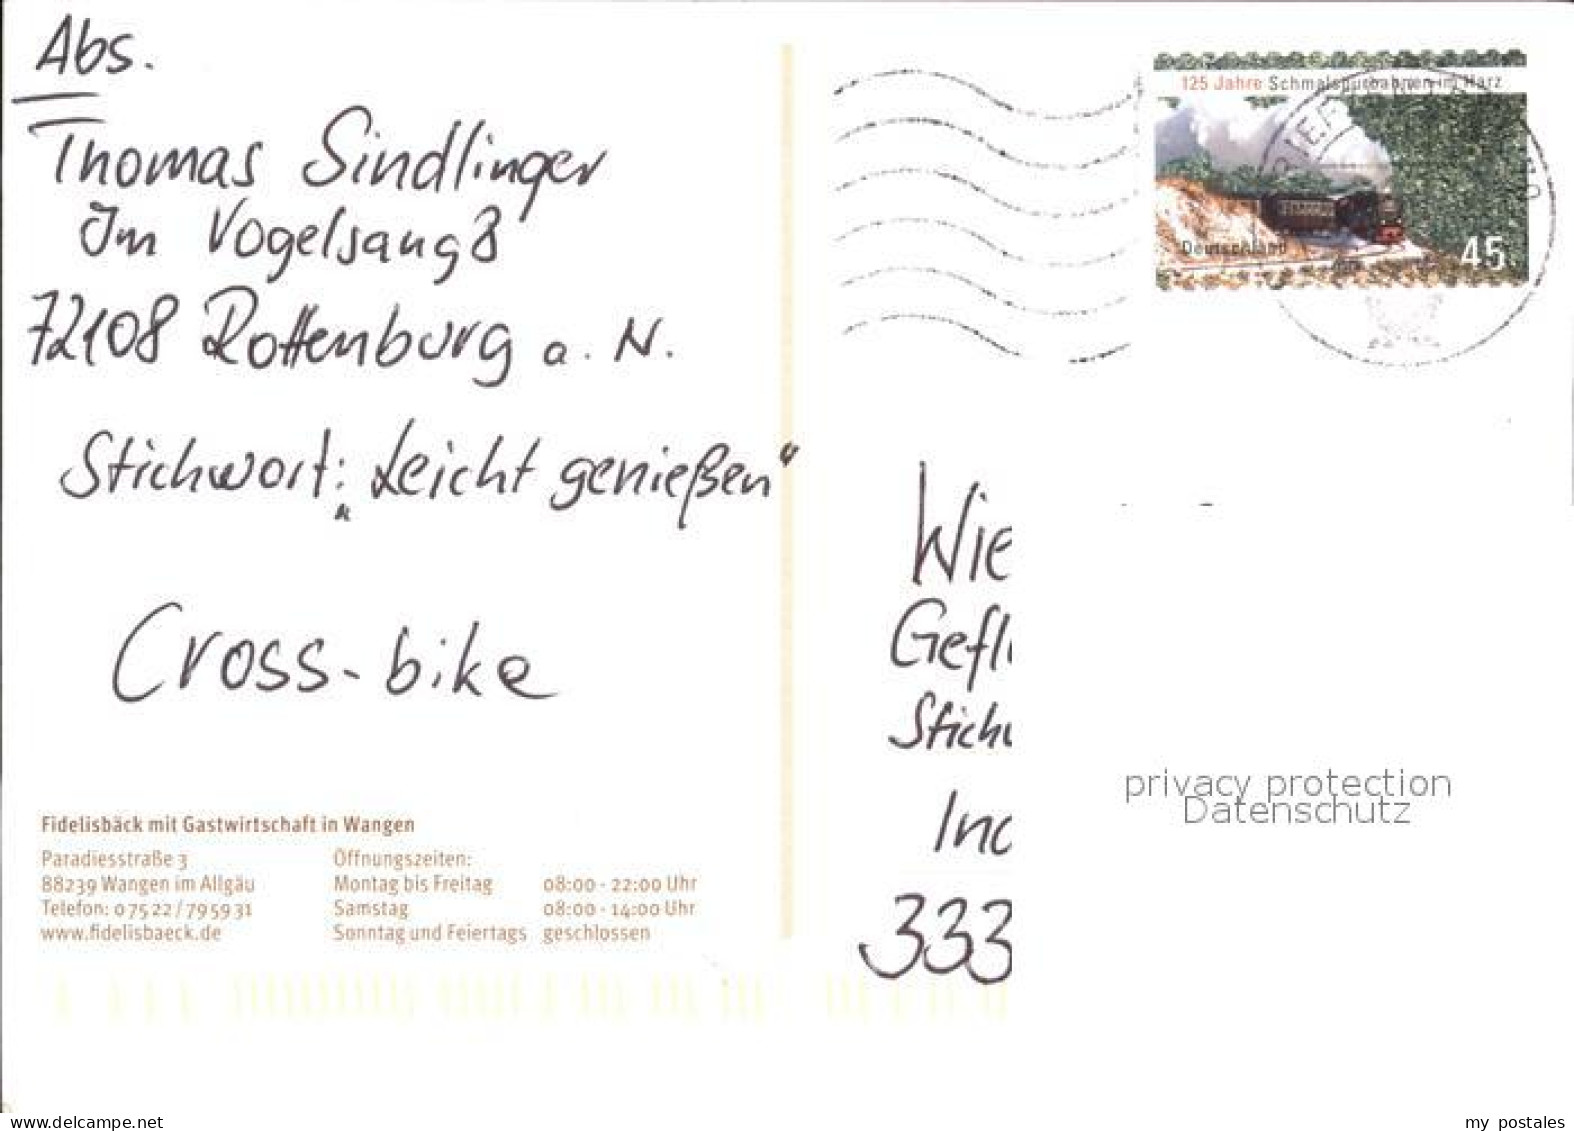 Abs.
Thomas Sindlinger
Im Vogelsang 8
72108 Rottenburg a. N.
Stichwort: „Leicht genießen“
Cross-bike
Fidelisbäck mit Gastwirtschaft in Wangen
Paradiesstraße 3
88239 Wangen im Allgäu
Telefon: 0 75 22 / 79 59 31
www.fidelisbaeck.de
Öffnungszeiten:
Montag bis Freitag 08:00 - 22:00 Uhr
Samstag 08:00 - 14:00 Uhr
Sonntag und Feiertags geschlossen
125 Jahre Schmalspurbahnen im Harz
Deutschland
45
Wie
Gefl
Stich
Ind
333
privacy protection
Datenschutz
www.delcampe.net
my postales